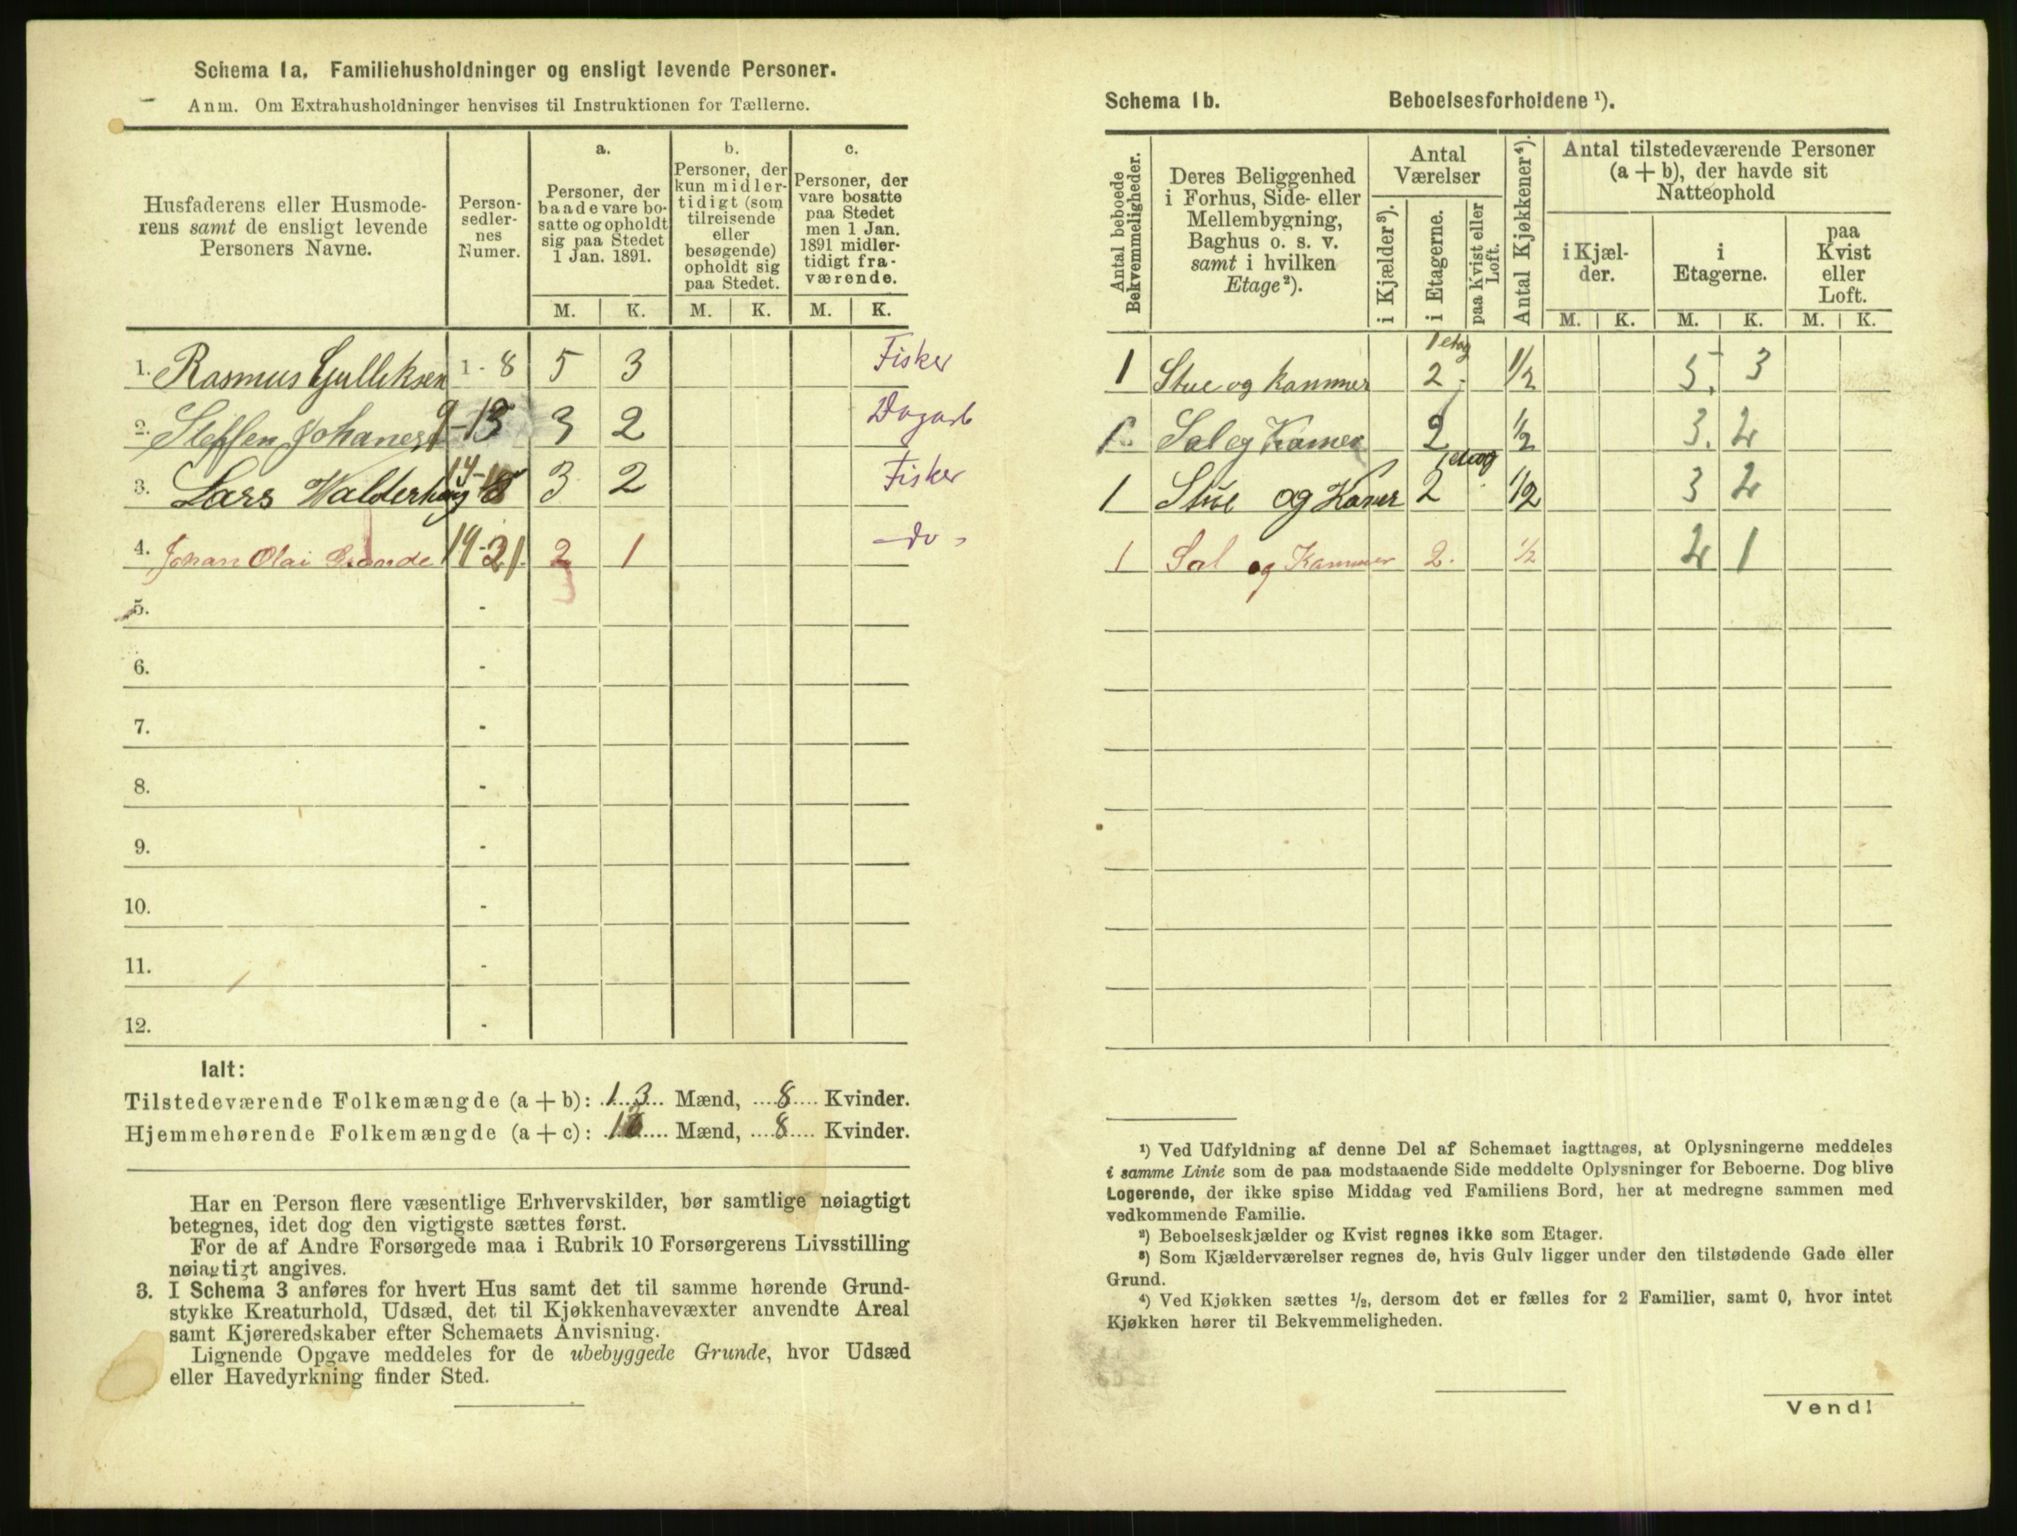 Schema 1a. Familiehusholdninger og ensligt levende Personer.
Anm. Om Extrahusholdninger henvises til Instruktionen for Tællerne.
Husfaderens eller Husmode-
rens samt de ensligt levende
Personers Navne.
Person-
sedler-
nes
Numer.
a.
Personer, der
baade vare bo-
satte og opholdt
sig paa Stedet
1 Jan. 1891.
b.
Personer, der
kun midler-
tidigt (som
tilreisende
eller
besøgende)
opholdt sig
paa Stedet.
c.
Personer, der
vare bosatte
paa Stedet
men 1 Jan.
1891 midler-
tidigt fra-
værende.
M. K. M. K. M. K.
1. Rasmus Gulliksen 1 - 8 5 3 Fisker
2. Steffen Johanes 9-13 3 2 Dagarb
3. Lars Walderhaug 14-18 3 2 Fisker
4. Johan Olai Grande 19-21. 2 1 - do -
5. -
6. -
7. -
8. -
9. -
10. -
11. -
12. -
Ialt:
Tilstedeværende Folkemængde (a + b): 13 Mænd, 8 Kvinder.
Hjemmehørende Folkemængde (a + c): Mænd, 8 Kvinder.
Har en Person flere væsentlige Erhvervskilder, bør samtlige nøiagtigt
betegnes, idet dog den vigtigste sættes først.
For de af Andre Forsørgede maa i Rubrik 10 Forsørgerens Livsstilling
nøiagtigt angives.
3. I Schema 3 anføres for hvert Hus samt det til samme hørende Grund-
stykke Kreaturhold, Udsæd, det til Kjøkkenhavevæxter anvendte Areal
samt Kjøreredskaber efter Schemaets Anvisning.
Lignende Opgave meddeles for de ubebyggede Grunde, hvor Udsæd
eller Havedyrkning finder Sted.
Schema 1b. Beboelsesforholdene ¹).
Antal beboede
Bekvemmeligheder.
Deres Beliggenhed
i Forhus, Side- eller
Mellembygning,
Baghus o. s. v.
samt i hvilken
Etage²).
Antal
Værelser
i Kjælder³).
i Etagerne.
paa Kvist eller
Loft.
Antal Kjøkkener⁴).
Antal tilstedeværende Personer
(a + b), der havde sit
Natteophold
i Kjæl-
der.
i
Etagerne.
paa
Kvist
eller
Loft.
M. K. M. K. M. K.
1 Stue og kammer 1 etag 2 - 1/2 5. 3
1 Sal og Kamer 2 1/2 3. 2
1 Stue og Kamer 1 etag 2 1/2 3 2
1 Sal og Kammer 2. 1/2 2 1
¹) Ved Udfyldning af denne Del af Schemaet iagttages, at Oplysningerne meddeles
i samme Linie som de paa modstaaende Side meddelte Oplysninger for Beboerne. Dog blive
Logerende, der ikke spise Middag ved Familiens Bord, her at medregne sammen med
vedkommende Familie.
²) Beboelseskjælder og Kvist regnes ikke som Etager.
³) Som Kjælderværelser regnes de, hvis Gulv ligger under den tilstødende Gade eller
Grund.
⁴) Ved Kjøkken sættes ½, dersom det er fælles for 2 Familier, samt 0, hvor intet
Kjøkken hører til Bekvemmeligheden.
Vend!